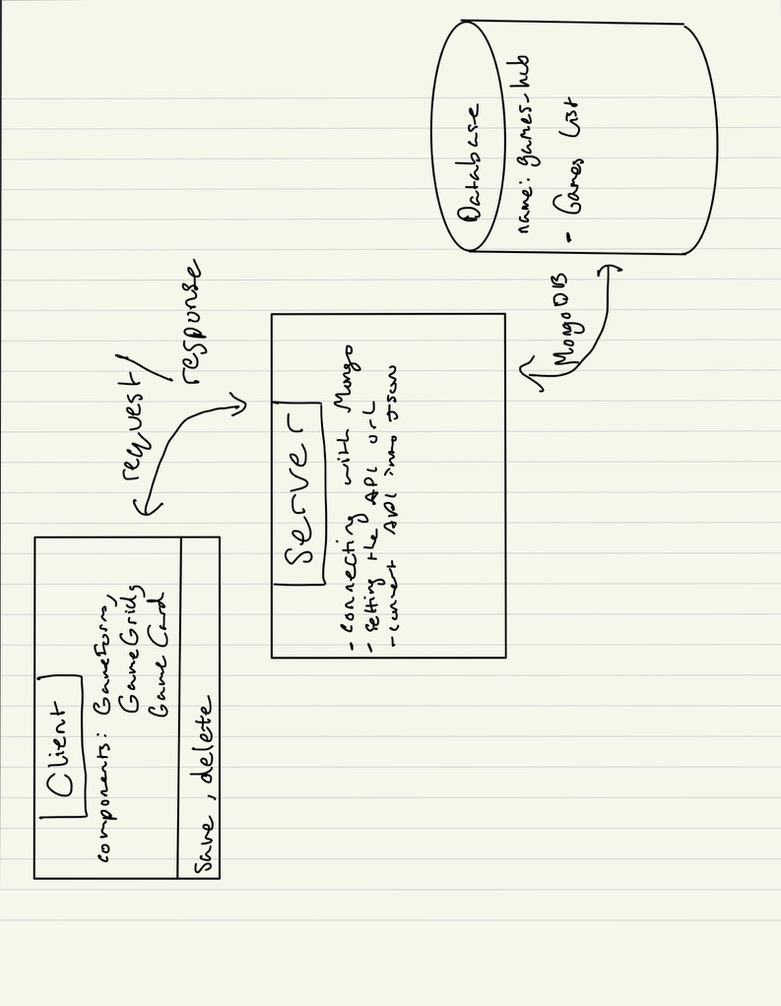 Client
components: GameForm,
GameGrid,
Game Card
Save, delete
request/
response
Server
- connecting with Mongo
- setting the API url
- convert API into Json
MongoDB
Database
name: games-hub
- Games List